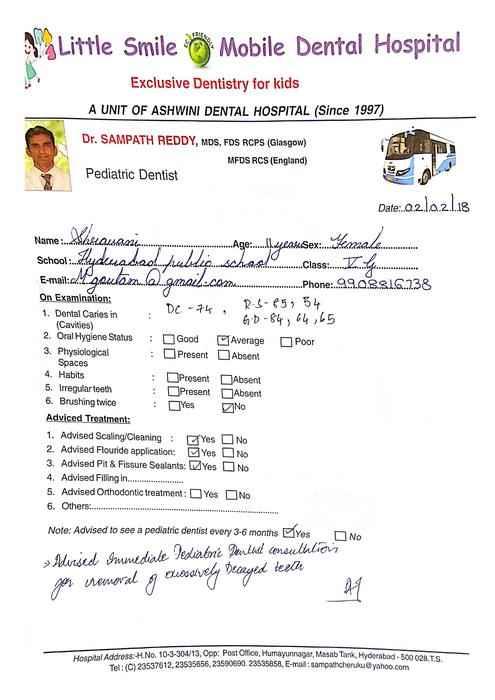 Little Smile ECO FRIENDLY Mobile Dental Hospital
Exclusive Dentistry for kids
A UNIT OF ASHWINI DENTAL HOSPITAL (Since 1997)
Dr. SAMPATH REDDY, MDS, FDS RCPS (Glasgow)
MFDS RCS (England)
Pediatric Dentist
Date: 02/02/18
Name: Age: 11 years Sex: Female
School: Hyderabad public school Class: V G
E-mail: Mgautam@gmail.com Phone: 9908816738
On Examination:
1. Dental Caries in (Cavities) : DC - 74, R.S - 85, 54
GD - 84, 64, 65
2. Oral Hygiene Status : Good Average Poor
3. Physiological Spaces : Present Absent
4. Habits : Present Absent
5. Irregular teeth : Present Absent
6. Brushing twice : Yes No
Adviced Treatment:
1. Advised Scaling/Cleaning : Yes No
2. Advised Flouride application: Yes No
3. Advised Pit & Fissure Sealants: Yes No
4. Advised Filling in
5. Advised Orthodontic treatment : Yes No
6. Others:
Note: Advised to see a pediatric dentist every 3-6 months Yes No
Advised Immediate Pediatric Dental consultation
for removal of excessively Decayed teeth
Hospital Address:-H.No. 10-3-304/13, Opp: Post Office, Humayunnagar, Masab Tank, Hyderabad - 500 028.T.S.
Tel : (C) 23537612, 23535656, 23590690. 23535858, E-mail : sampathcheruku@yahoo.com